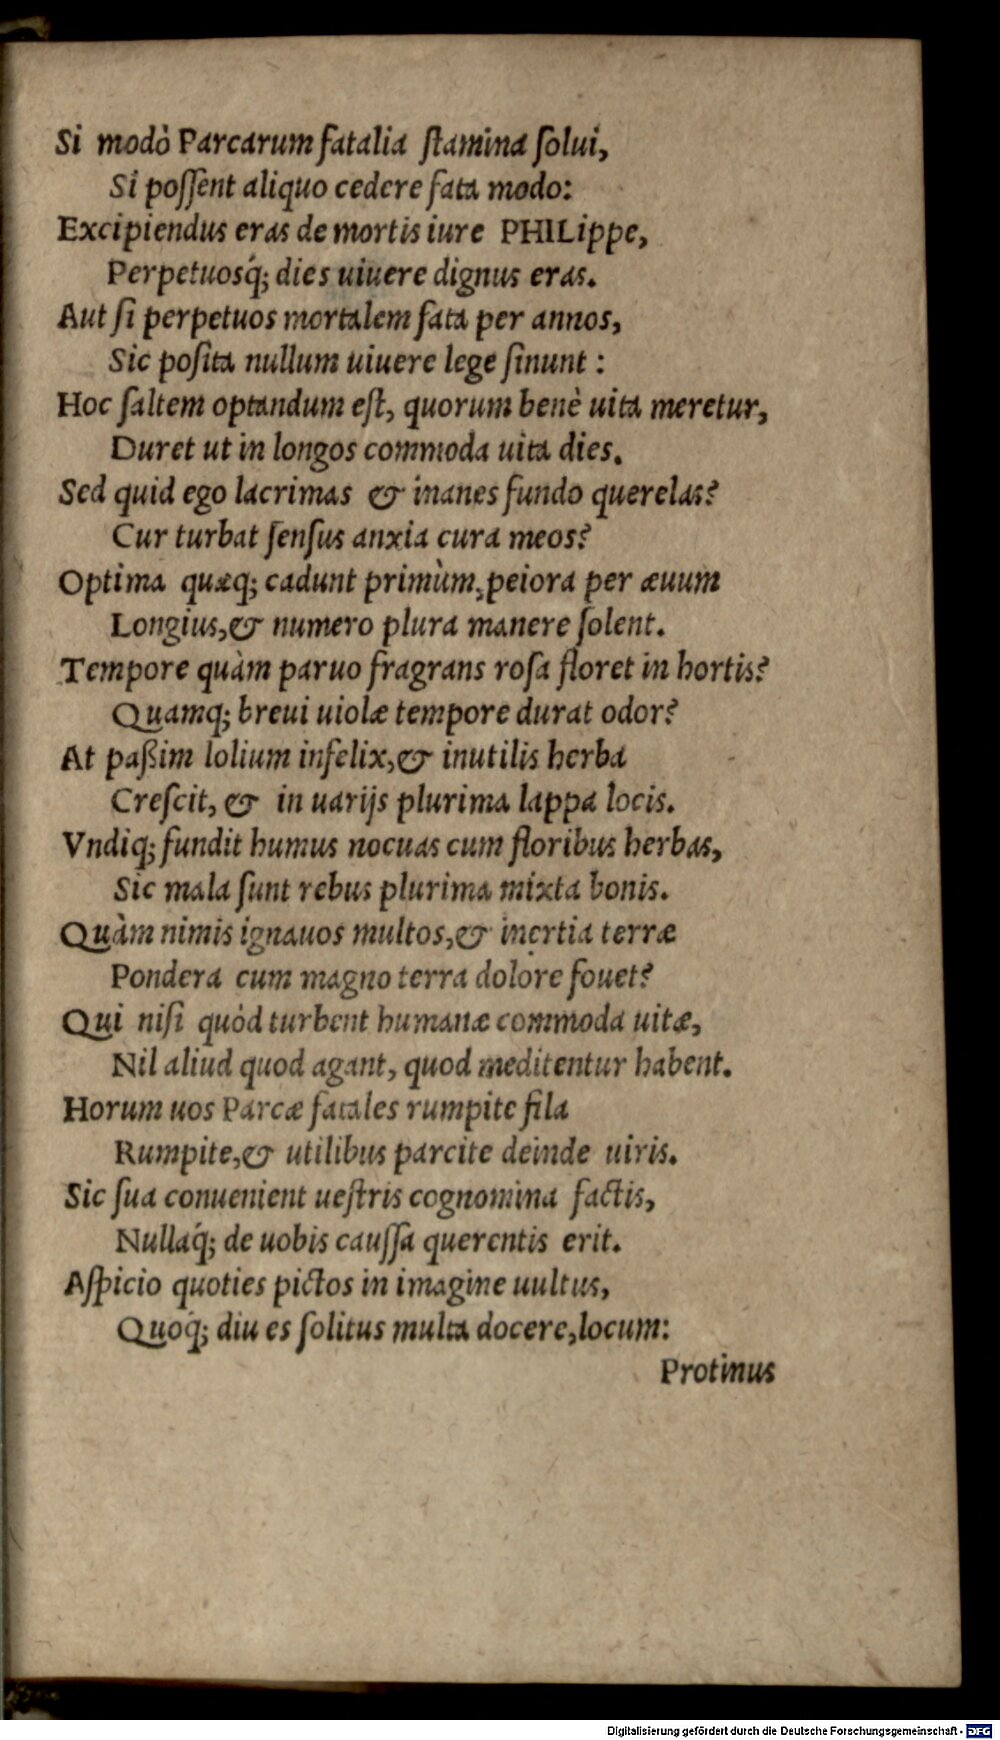 Si modò Parcarum fatalia ſtamina ſolui,
Si poſſent aliquo cedere fata modo:
Excipiendus eras de mortis iure PHILippe,
Perpetuosq́; dies uiuere dignus eras.
Aut ſi perpetuos mortalem fata per annos,
Sic poſita nullum uiuere lege ſinunt :
Hoc ſaltem optandum eſt, quorum benè uita meretur,
Duret ut in longos commoda uita dies.
Sed quid ego lacrimas & inanes fundo querelas?
Cur turbat ſenſus anxia cura meos?
Optima quæq; cadunt primùm, peiora per æuum
Longius, & numero plura manere ſolent.
Tempore quàm paruo fragrans roſa floret in hortis?
Quamq; breui uiolæ tempore durat odor?
At paßim lolium infelix, & inutilis herba
Creſcit, & in uarijs plurima lappa locis.
Vndiq; fundit humus nocuas cum floribus herbas,
Sic mala ſunt rebus plurima mixta bonis.
Quàm nimis ignauos multos, & inertia terræ
Pondera cum magno terra dolore fouet?
Qui niſi quòd turbent humanæ commoda uitæ,
Nil aliud quod agant, quod meditentur habent.
Horum uos Parcæ fatales rumpite fila
Rumpite, & utilibus parcite deinde uiris.
Sic ſua conuenient ueſtris cognomina factis,
Nullaq́; de uobis cauſſa querentis erit.
Aſpicio quoties pictos in imagine uultus,
Quoq́; diu es ſolitus multa docere, locum:
Protinus
Digitalisierung gefördert durch die Deutsche Forschungsgemeinschaft - DFG